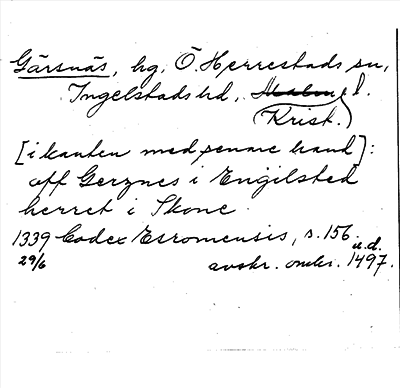 Gärsnäs, hg, Ö. Herrestads sn,
Ingelstads hd, Malm. l.
(Krist.)
[i kanten med senare hand]:
aff Gerznes i Engilsted
herret i Skone.
1339 Codex Esromensis, s. 156. u.d.
29/6 avskr. omkr. 1497.